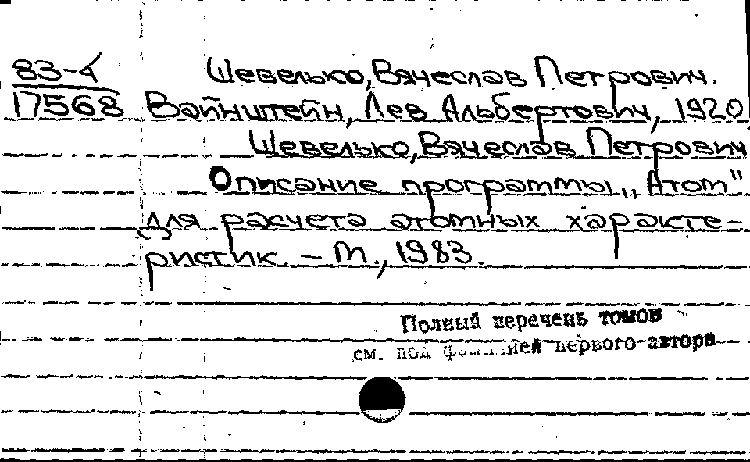 83-4
17568
Шевелько, Вячеслав Петрович.
Вайнштейн, Лев Альбертович, 1920
Шевелько, Вячеслав Петрович
Описание программы „Атом"
для расчета атомных характе-
ристик. – М., 1983.
Полный перечень томов
см. под фамилией первого автора